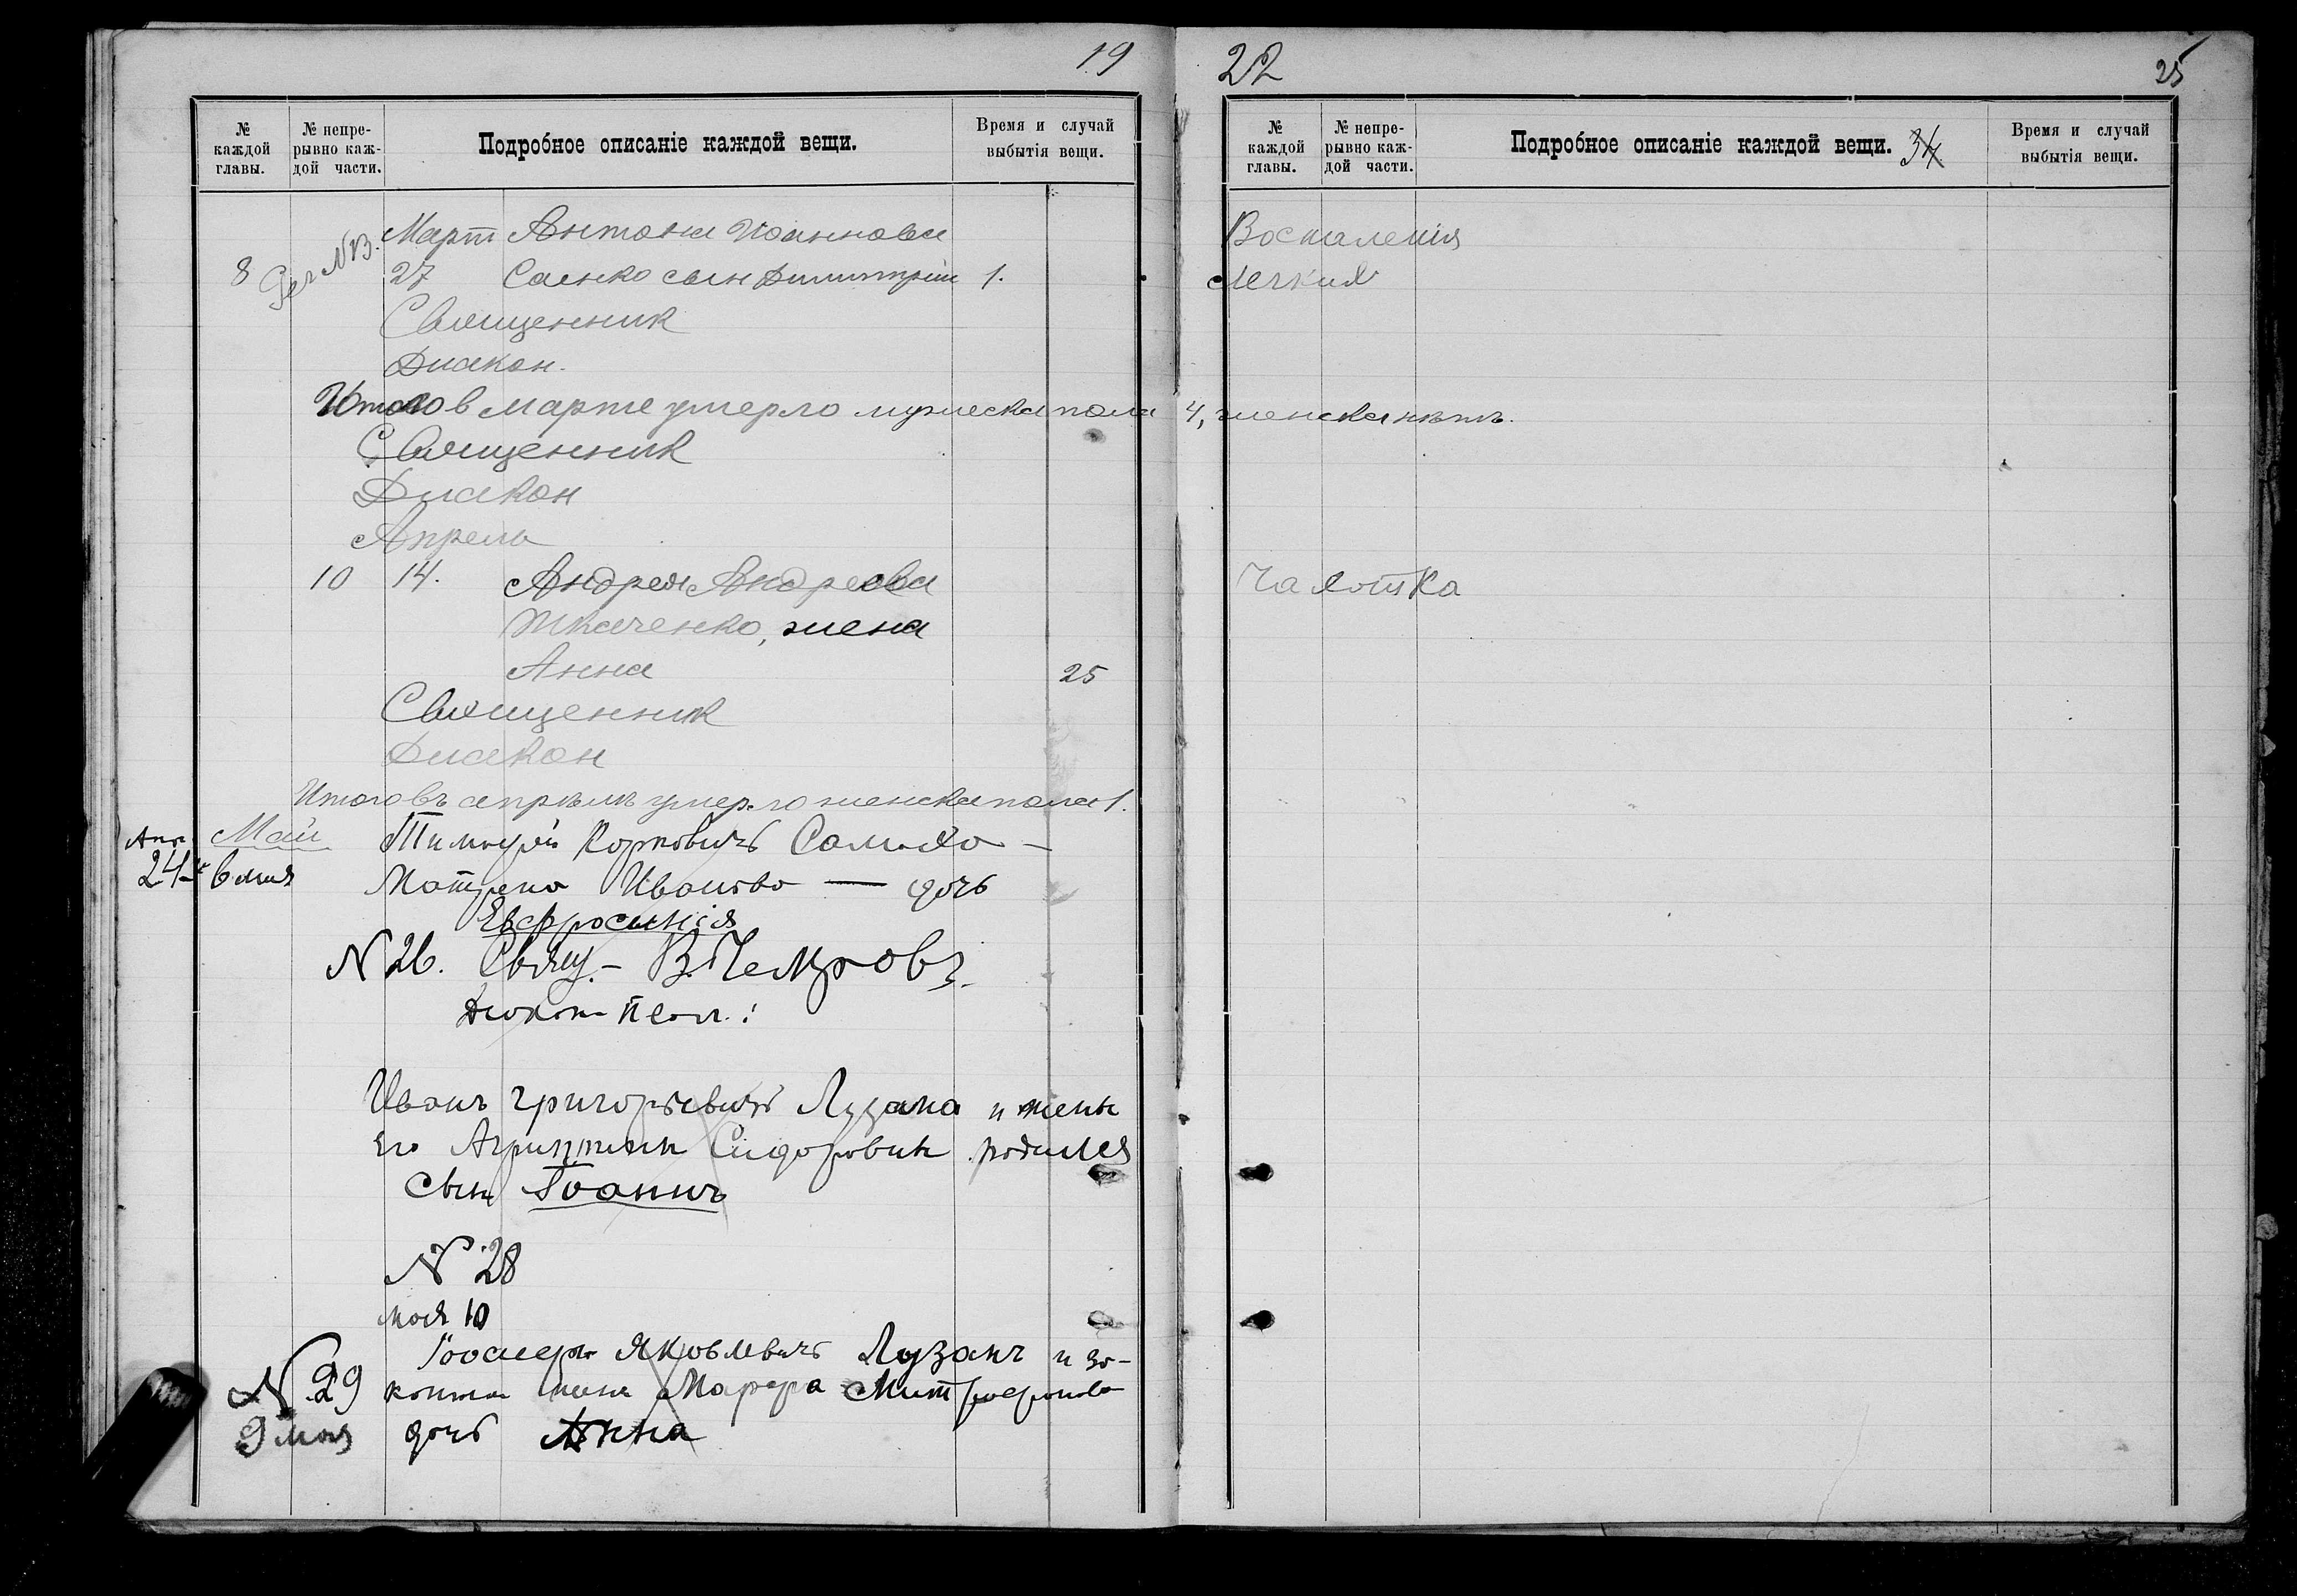 19
№ каждой главы.
№ непре-рывно каж-дой части.
Подробное описаніе каждой вещи.
Время и случай выбытія вещи.
Март Антона Иоаннова
8 NB. 27 Саенко сын Димитрій 1.
Священник
Диакон.
Итого в марте умерло мужеска пола 4, женска нѣтъ.
Священник
Диакон
Апрель
10 14. Андрея Андреева
Ткаченко, жена
Анна 25
Священник
Диакон
Итого въ апрѣлѣ умерло женска пола 1.
Май
Апр. 24 6 мая
Матрена Иванова — дочь
Евфросинія
N 26. Свящ. – В. Петровъ.
Диакон Псал.:
Иванъ Григорьевичъ Лузана и жены
его Агриппины Сидоровны родился
сынъ Іоаннъ
N 28
мая 10
Яковлевичъ Лузанъ и за-
N 29 жена Марфа Митрофанова
9 мая дочь Анна
22
25
№ каждой главы.
№ непре-рывно каж-дой части.
Подробное описаніе каждой вещи. 34
Время и случай выбытія вещи.
Воспаления
Легких
Чахотка